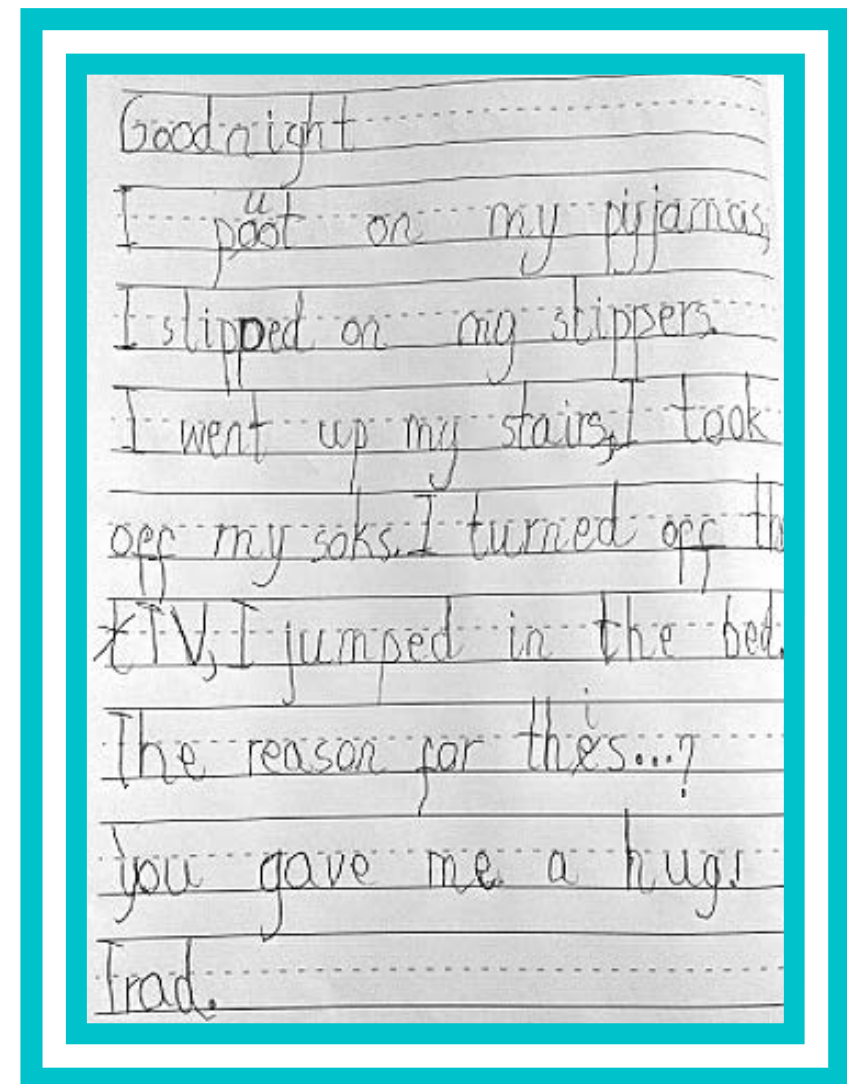 Goodnight
I put on my pyjamas,
I slipped on my slippers.
I went up my stairs, I took
off my soks. I turned off th
TV, I jumped in the bed.
The reason for this...?
you gave me a hug!
Irad.